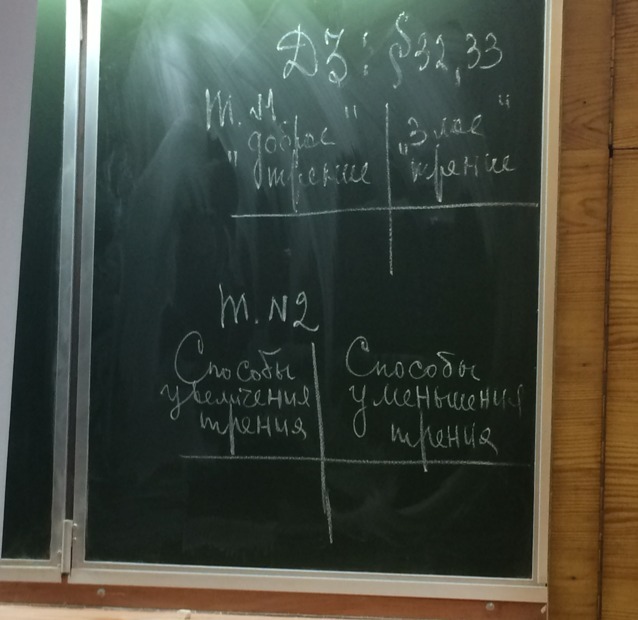 ДЗ: § 32, 33
Т. №1
"доброе"
трение
"злое"
трение
Т. №2
Способы
увеличения
трения
Способы
уменьшения
трения